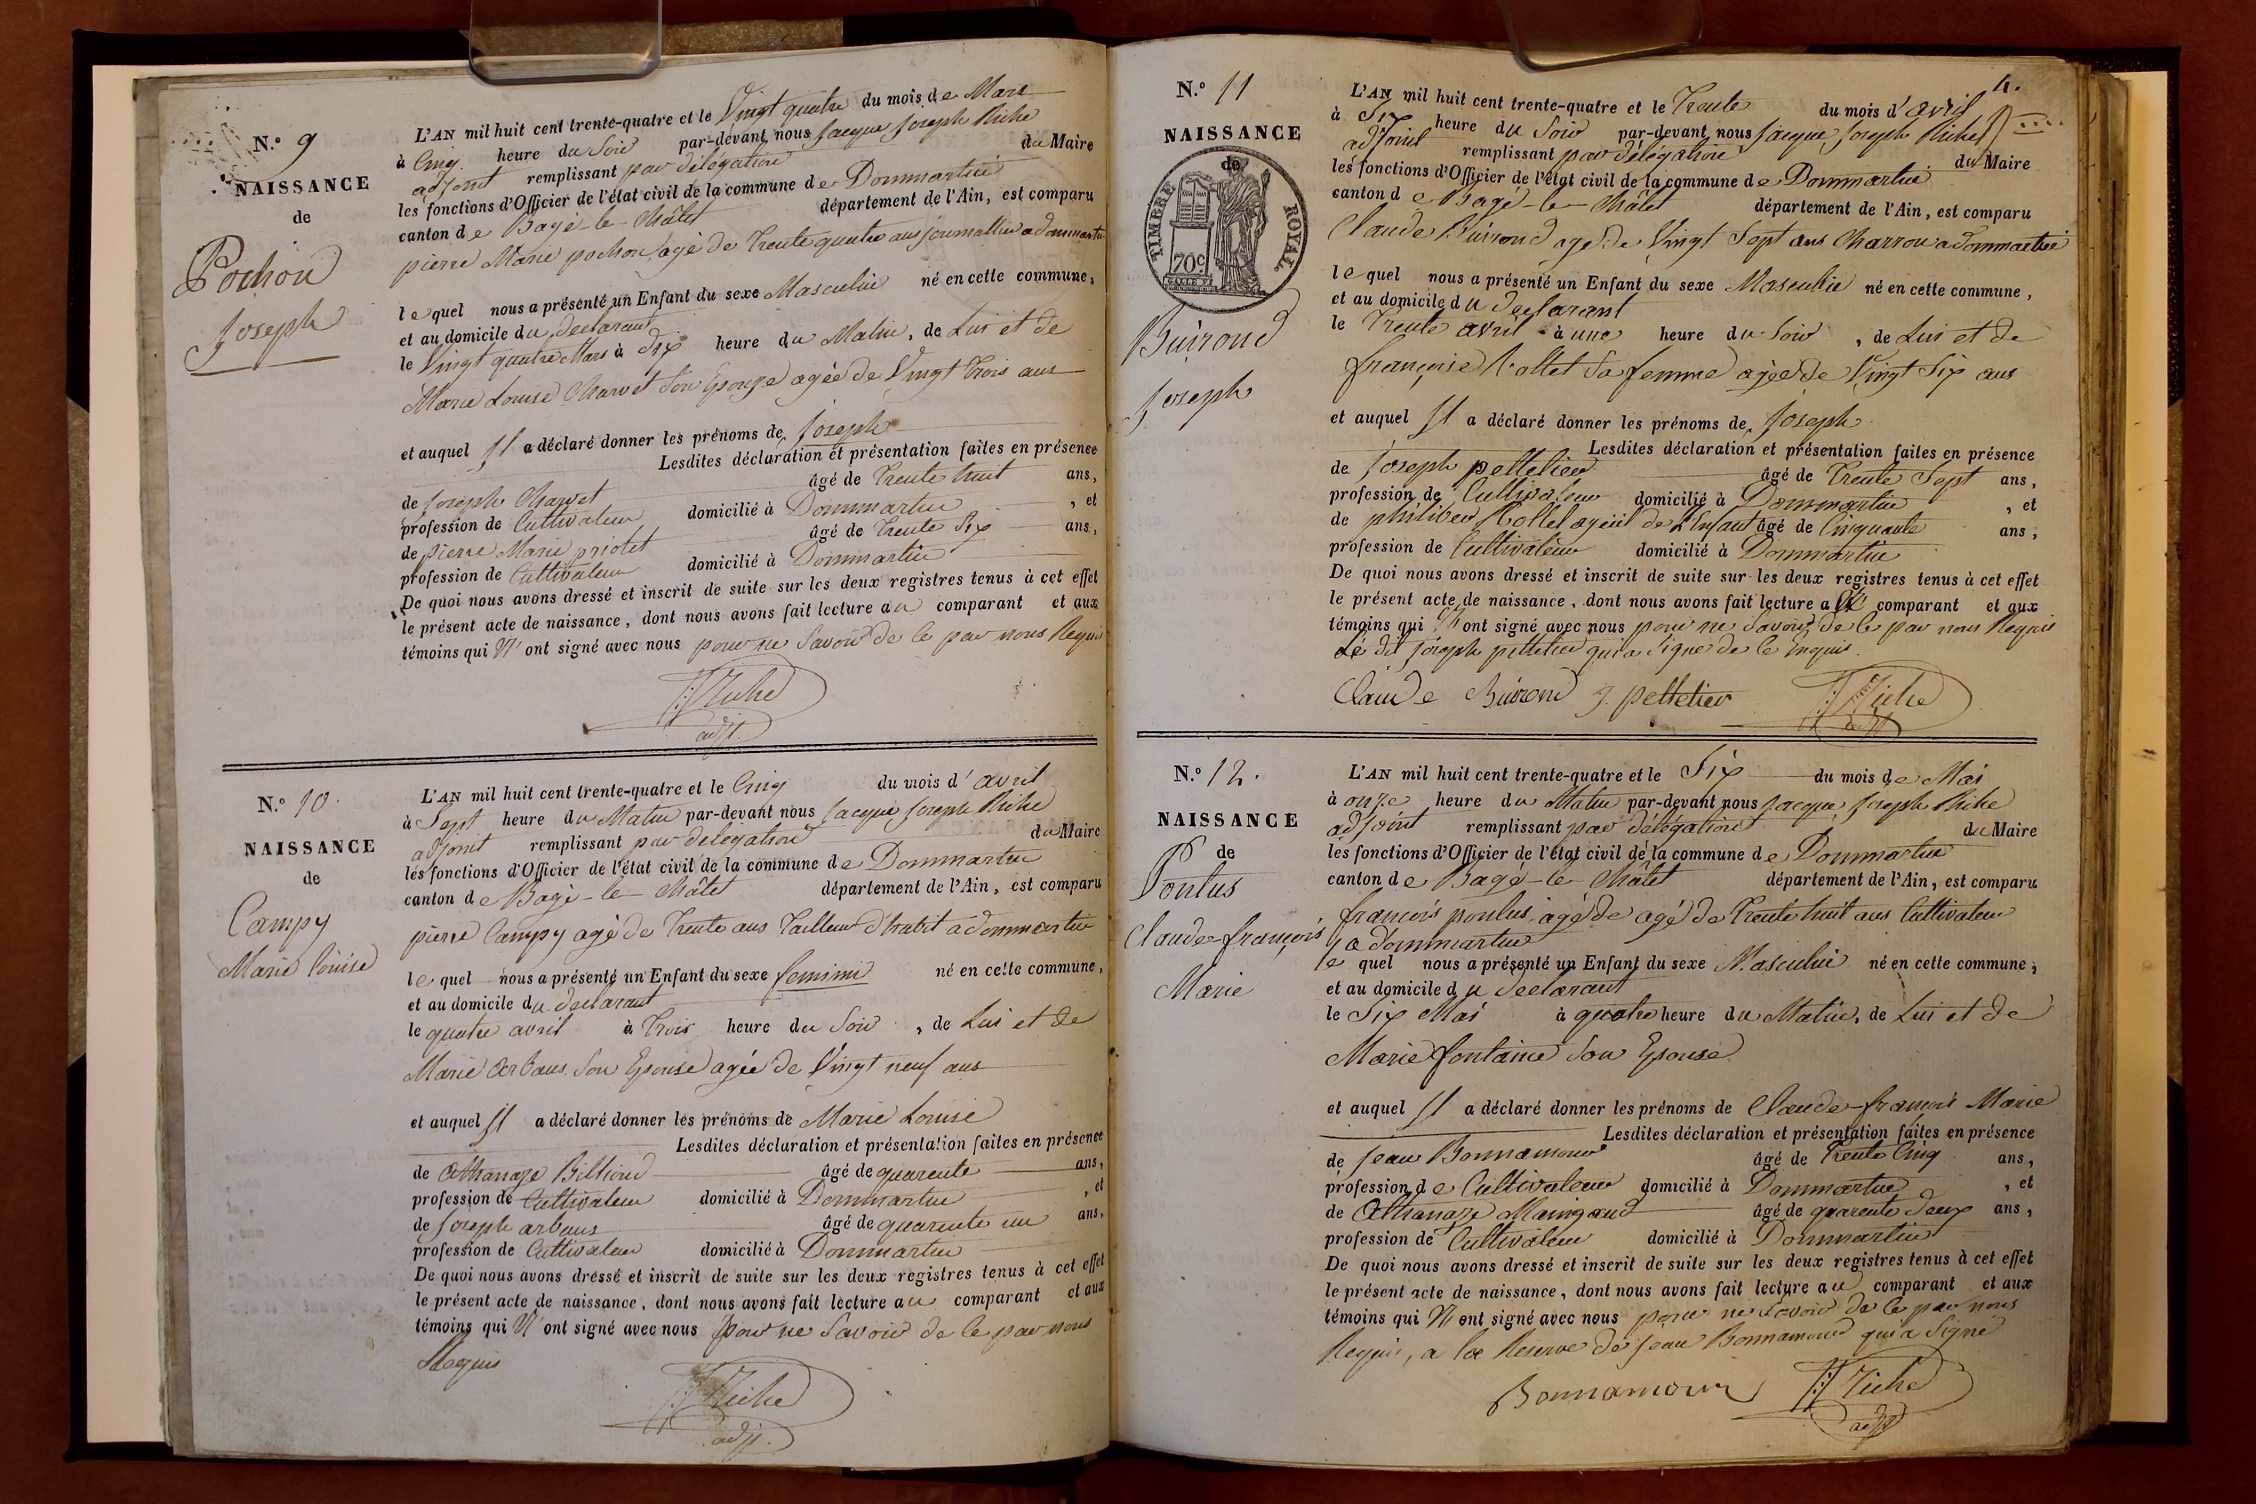 N.º 9
NAISSANCE
de
Pochon
Joseph
L'AN mil huit cent trente-quatre et le Vingt quatre du mois de Mars
à Cinq heure du Soir par-devant nous Jacque Joseph Riche
adjoint remplissant par délégation du Maire
les fonctions d'Officier de l'état civil de la commune de Dommartin
canton de Bagé-le-Châtel département de l'Ain, est comparu
pierre Marie pochon agé de Trente quatre ans journallier a dommartin
le quel nous a présenté un Enfant du sexe Masculin né en cette commune,
et au domicile du declarant
le Vingt quatre Mars à dix heure du Matin, de Lui et de
Marie Louise Charvet Son Epouze agée de Vingt Trois ans
et auquel Il a déclaré donner les prénoms de Joseph
Lesdites déclaration et présentation faites en présence
de Joseph Charvet âgé de Trente huit ans,
profession de Cultivateur domicilié à Dommartin, et
de pierre Marie priolet âgé de Trente Six ans,
profession de Cultivateur domicilié à Dommartin
De quoi nous avons dressé et inscrit de suite sur les deux registres tenus à cet effet
le présent acte de naissance, dont nous avons fait lecture au comparant et aux
témoins qui N'ont signé avec nous pour ne Savoir de ce par nous Requis
JJ Riche
adjt.
N.º 10.
NAISSANCE
de
Campy
Marie louise
L'AN mil huit cent trente-quatre et le Cinq du mois d'avril
à Sept heure du Matin par-devant nous Jacque Joseph Riche
adjoint remplissant par delegation du Maire
les fonctions d'Officier de l'état civil de la commune de Dommartin
canton de Bagé-le-Châtel département de l'Ain, est comparu
pierre Campy agé de Trente ans Tailleur d'habit a dommartin
le quel nous a présenté un Enfant du sexe feminin né en cette commune,
et au domicile du declarant
le quatre avril à Trois heure du Soir, de Lui et de
Marie Arbans Son Epouse agée de Vingt neuf ans
et auquel Il a déclaré donner les prénoms de Marie Louise
Lesdites déclaration et présentation faites en présence
de Athanaze Billioud âgé de quarente ans,
profession de Cultivateur domicilié à Dommartin, et
de Joseph arbans âgé de quarente un ans,
profession de Cultivateur domicilié à Dommartin
De quoi nous avons dressé et inscrit de suite sur les deux registres tenus à cet effet
le présent acte de naissance, dont nous avons fait lecture au comparant et aux
témoins qui N'ont signé avec nous pour ne Savoir de ce par nous
Requis
JJ Riche
adjt.
4.
N.º 11
NAISSANCE
de
TIMBRE ROYAL
70c
Buirond
Joseph
L'AN mil huit cent trente-quatre et le Trente du mois d'avril
à Six heure du Soir par-devant nous Jacque Joseph Riche
adjoint remplissant par délégation du Maire
les fonctions d'Officier de l'état civil de la commune de Dommartin
canton de Bagé-le-Châtel département de l'Ain, est comparu
Claude Buirond agé de Vingt Sept ans Charron a Dommartin
le quel nous a présenté un Enfant du sexe Masculin né en cette commune,
et au domicile du declarant
le Trente avril à une heure du Soir, de Lui et de
françoise Sa femme agée de Vingt Six ans
et auquel Il a déclaré donner les prénoms de Joseph
Lesdites déclaration et présentation faites en présence
de Joseph pelletier âgé de Trente Sept ans,
profession de Cultivateur domicilié à Dommartin, et
de philiber ayeuil de L'Enfant âgé de Cinquante ans,
profession de Cultivateur domicilié à Dommartin
De quoi nous avons dressé et inscrit de suite sur les deux registres tenus à cet effet
le présent acte de naissance, dont nous avons fait lecture au comparant et aux
témoins qui N'ont signé avec nous pour ne Savoir de ce par nous Requis
Le dit Joseph pelletier qui a Signé de ce Enquis
Claude Buirond J. pelletier JJ Riche
adjt
N.º 12.
NAISSANCE
de
Poulus
Claude-françois
Marie
L'AN mil huit cent trente-quatre et le Six du mois de Mai
à onze heure du Matin par-devant nous Jacque Joseph Riche
adjoint remplissant par délégation du Maire
les fonctions d'Officier de l'état civil de la commune de Dommartin
canton de Bagé-le-Châtel département de l'Ain, est comparu
françois poulus agé de agé de Trente huit ans Cultivateur
a dommartin
le quel nous a présenté un Enfant du sexe Masculin né en cette commune,
et au domicile du declarant
le Six Mai à quatre heure du Matin, de Lui et de
Marie fontaine Son Epouse
et auquel Il a déclaré donner les prénoms de Claude-françois Marie
Lesdites déclaration et présentation faites en présence
de Jean Bonnamour âgé de Trente Cinq ans,
profession de Cultivateur domicilié à Dommartin, et
de Athanaze Maingaud âgé de quarente deux ans,
profession de Cultivateur domicilié à Dommartin
De quoi nous avons dressé et inscrit de suite sur les deux registres tenus à cet effet
le présent acte de naissance, dont nous avons fait lecture au comparant et aux
témoins qui N'ont signé avec nous pour ne Savoir de ce par nous
Requis, a la Reserve de Jean Bonnamour qui a Signé
Bonnamour JJ Riche
adjt